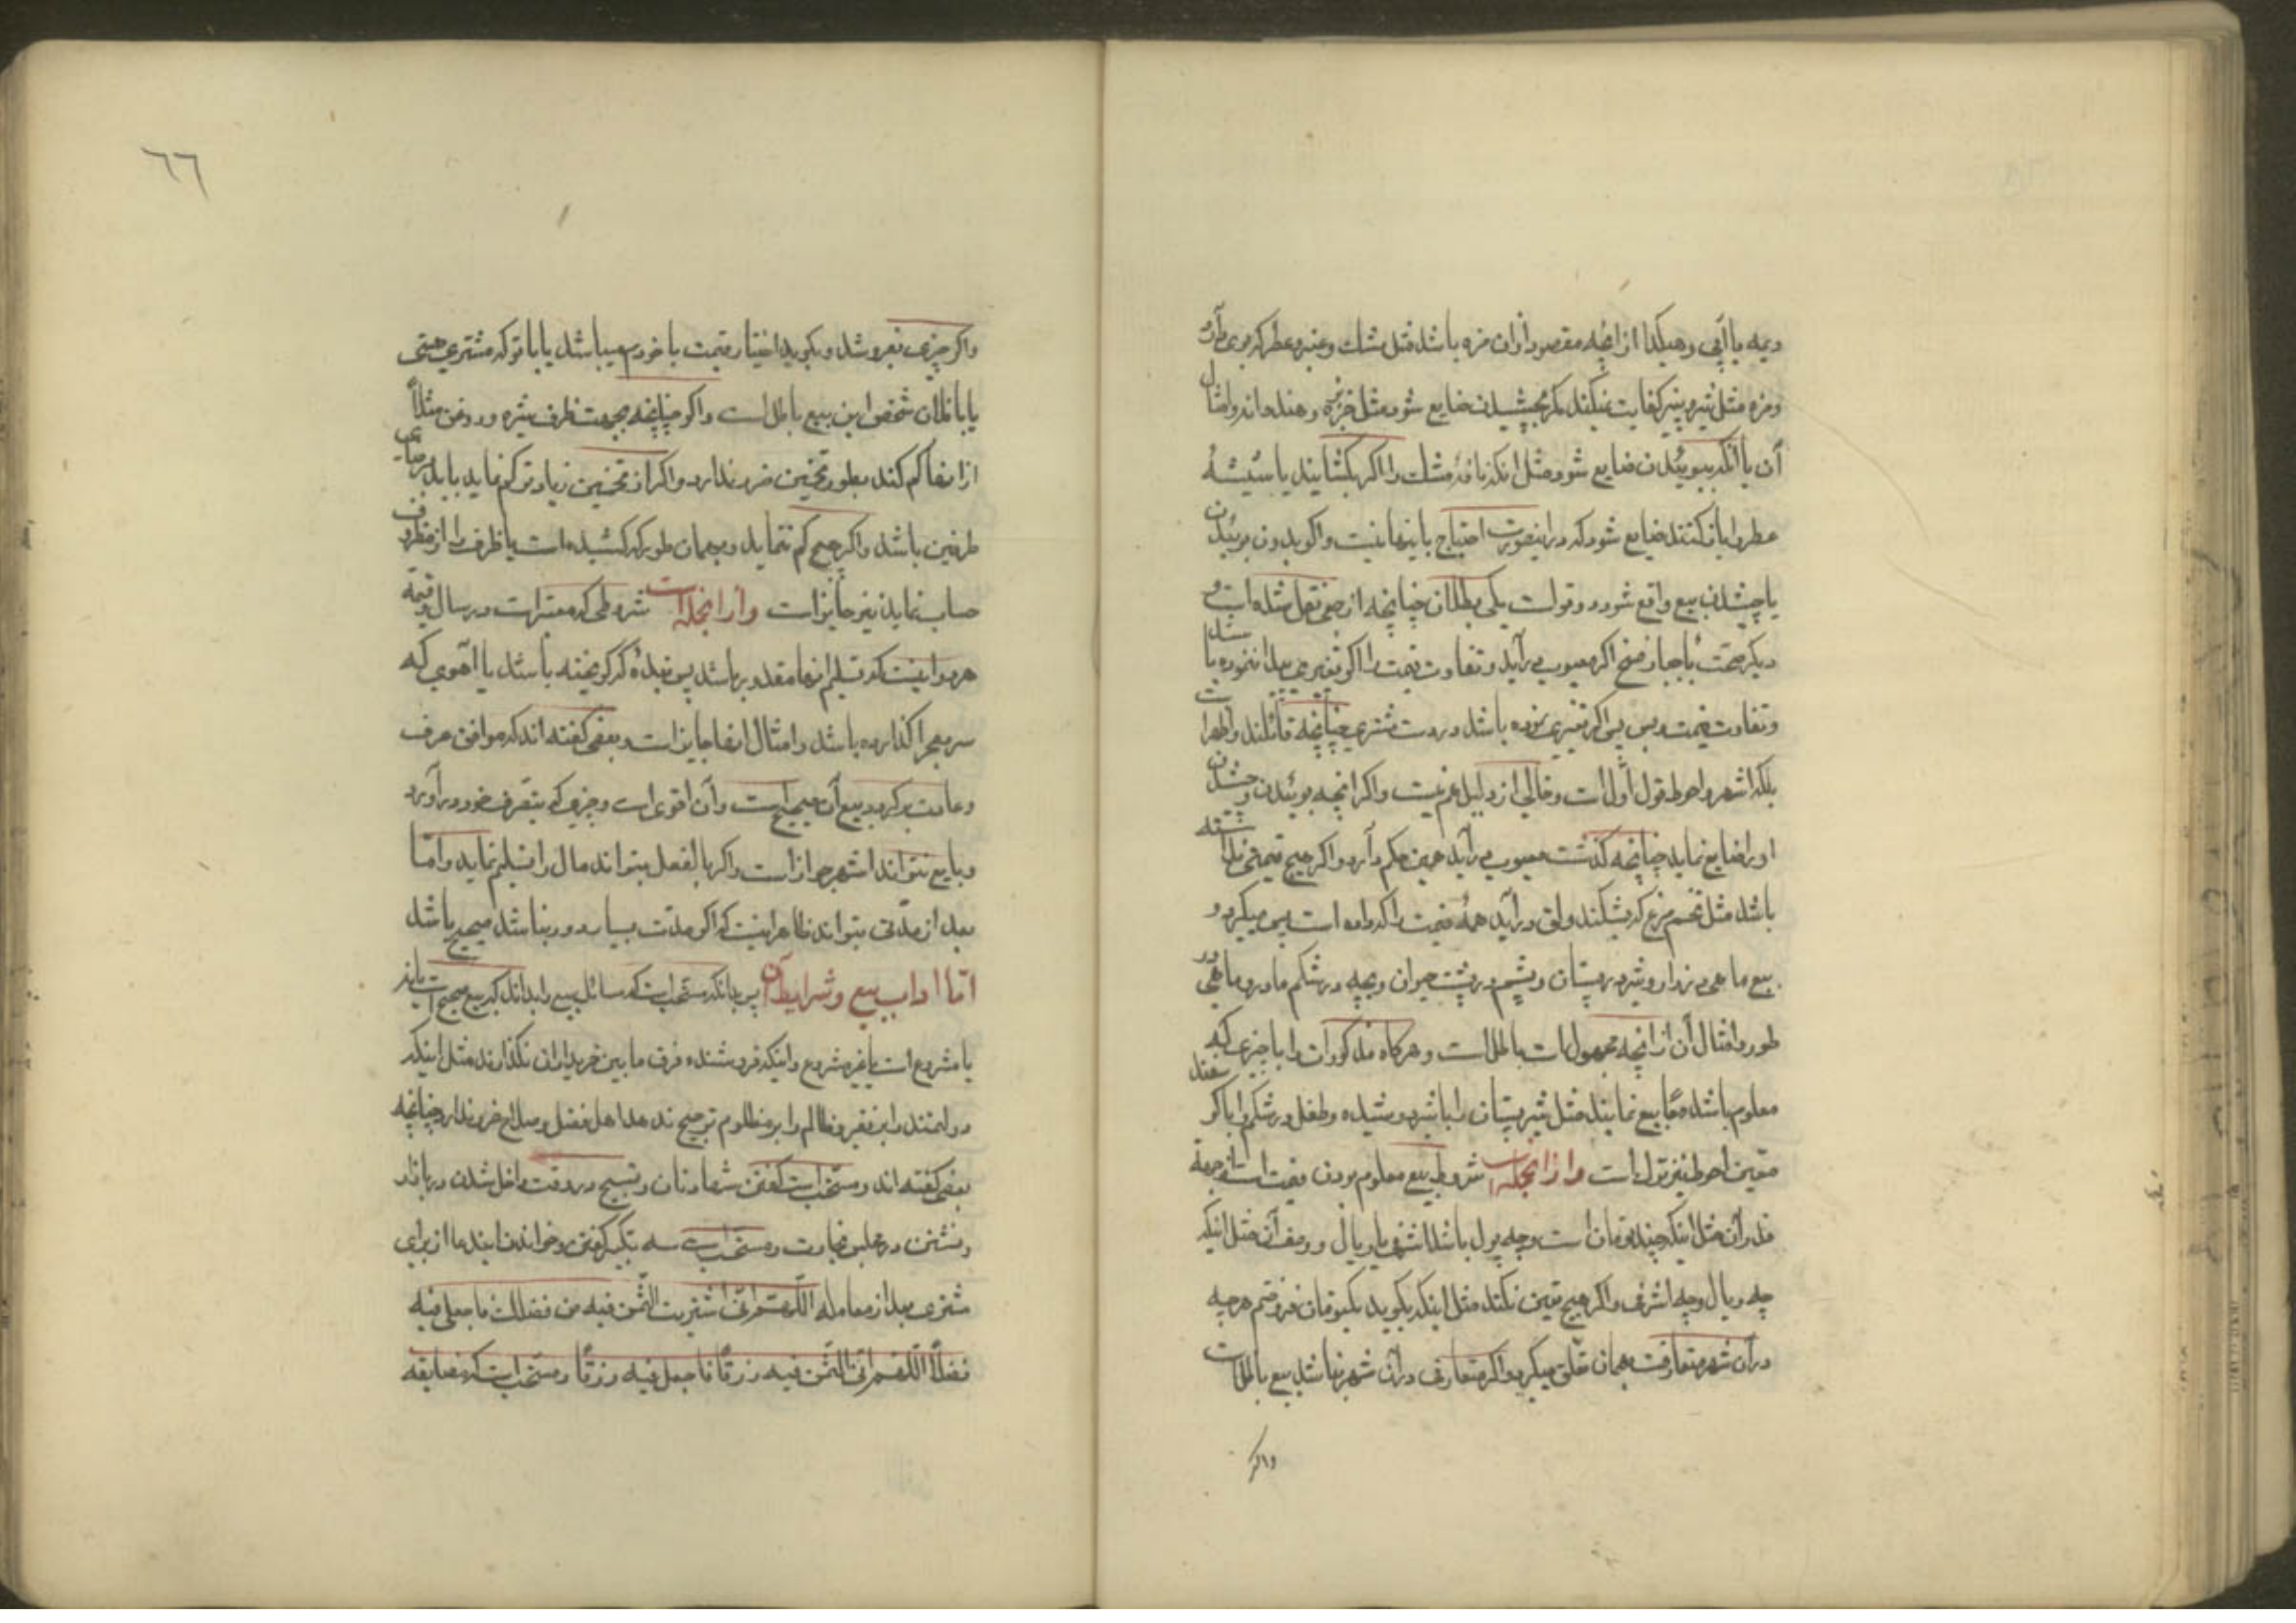 دیمه یا آبی و هکذا از آنچه مقصود از آن مزه باشد مثل مشک و عنبر و عطر که بوی آن
و مزه مثل شیر و پنیر کفایت نمیکند مگر بچشیدن ضایع شود مثل خربزه و هندوانه و امثال
آن یا آنکه ببوئیدن ضایع شود مثل اینکه نافهٔ مشک را اگر بکشایند یا شیشهٔ
عطر را باز کنند ضایع شود که در اینصورت احتیاج باینها نیست و اگر بدون بوئیدن
یا چشیدن بیع واقع شود دو قول است یکی بطلان چنانچه از بعضی نقل شده است و
دیکر صحت با خیار فسخ اگر معیوب برآید و تفاوت قیمت را اگر تغییری نموده باشد
و تفاوت قیمت و بس پس اگر تغییری نموده باشد در دست مشتری چنانچه قائلند و اظهر است
بلکه اشهر و احوط قول اول است و خالی از دلیل هم نیست و اگر آنچه بوئیدن و چشیدن
او را ضایع نماید چنانچه گذشت معیوب برآید همین حکم دارد و اگر هیچ قیمتی نداشته
باشد مثل تخم مرغ که بشکند و لق درآید همه قیمت را که داده است پس میگیرد و
بیع ماهی در نزار و شیر در پستان و پشم در پشت حیوان و بچه در شکم مادر و ماهی در
طور و امثال آن از آنچه مجهول است باطل است و هرگاه مذکورات را با چیزی که
معلوم باشد معاً بیع نمایند مثل شیر پستان را با شیر دوشیده و طفل در شکم را با گوسفند
معین احوط نیز ترک است و از انجمله است شروط بیع معلوم بودن قیمت است از جهة
قدر آن مثل اینکه چند تومان است و چه پول باشد اشرفی یا ریال و وصف آن مثل اینکه
چه ریال و چه اشرفی و اگر هیچ تعیین نکند مثل اینکه بگوید بیکتومان فروختم هر چه
در آن شهر متعارفست بهمان تعلق میگیرد و اگر متعارف در آن شهر نباشد بیع باطل است
واگر
٦٦
واگر چیزی بفروشد و بگوید اختیار قیمت با خودم میباشد یا با تو که مشتری هستی
یا با فلان شخص این بیع باطل است و اگر چنانچه بجهت ظرف شیره و روغن مثلاً
از آنها کم کند بطور تخمین ضرر ندارد و اگر از تخمین زیادتر کم نماید باید برضای
طرفین باشد و اگر هیچ کم ننماید و بهمان طور که کشیده است با ظرف را از مظروف
حساب نماید نیز جایز است و از انجمله است شروطی که معتبر است در مال و قیمة
هر دو اینست که تسلیم آنها مقدور باشد پس بندهٔ که گریخته باشد یا آهوی که
سر بصحرا گذارده باشد و امثال اینها جایز است و بعضی گفته اند که موافق عرف
و عادت برگردد بیع آن صحیح است و آن اقوی است و چیزی که بتصرف خود درآورد
و بایع نتواند اشهر جواز است و اگر بالفعل نتواند مال را تسلیم نماید و امّا
بعد از مدّتی بتواند ظاهر اینست که اگر مدّت بسیار دور نباشد صحیح باشد
امّا اداب بیع و شرایط آن پس بدانکه مستحب است که مسائل بیع را بداند که بیع صحیح است یا نه
یا مشروع است یا غیر مشروع و اینکه فروشنده فرق ما بین خریداران نگذارند مثل اینکه
دولتمند را بر فقیر و ظالم را بر مظلوم ترجیح ندهد اما اهل فضل و صلاح ضرر ندارد چنانچه
بعضی گفته اند و مستحب است گفتن شهادتان و تسبیح در وقت داخل شدن در بازار
و نشستن در مجلس تجارت و مستحب است سه تکبیر گفتن و خواندن این دعا از برای
مشتری بعد از معامله اللّهم انّی اشتریت التمس فیه من فضلک فاجعل فیه
فضلاً اللّهم انّی التمس فیه رزقاً فاجعل فیه رزقاً و مستحب است که مضایقه